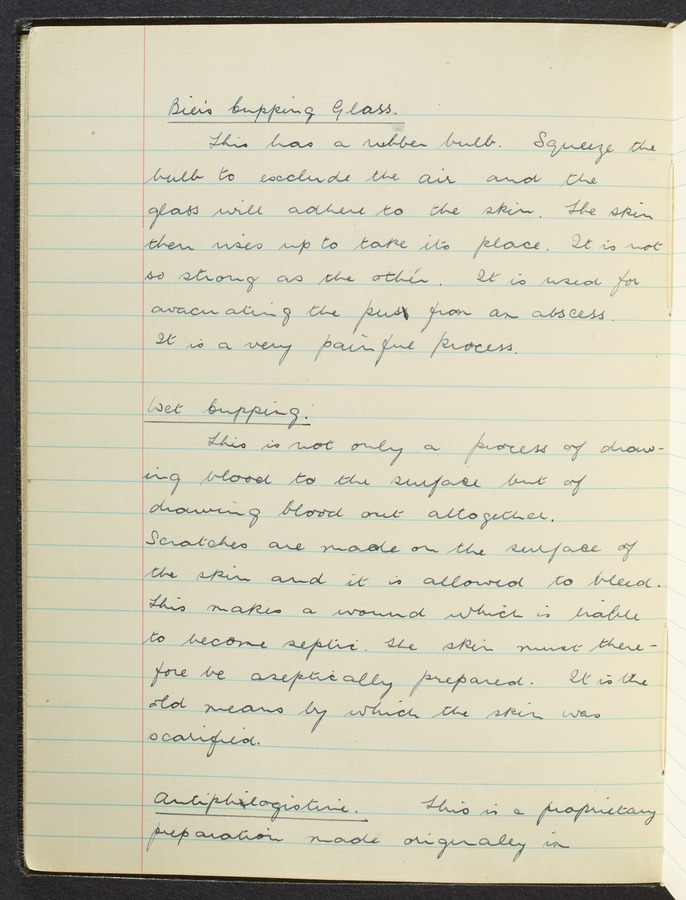 Bier's Cupping Glass.
This has a rubber bulb. Squeeze the
bulb to exclude the air and the
glass will adhere to the skin. The skin
then rises up to take its place. It is not
so strong as the other. It is used for
avacuating the pus from an abscess.
It is a very painful process.
Wet Cupping.
This is not only a process of draw-
ing blood to the surface but of
drawing blood out altogether.
Scratches are made on the surface of
the skin and it is allowed to bleed.
This makes a wound which is liable
to become septic. The skin must there-
fore be aseptically prepared. It is the
old means by which the skin was
scarified.
Antiphlogistine. This is a proprietary
preparation made originally in